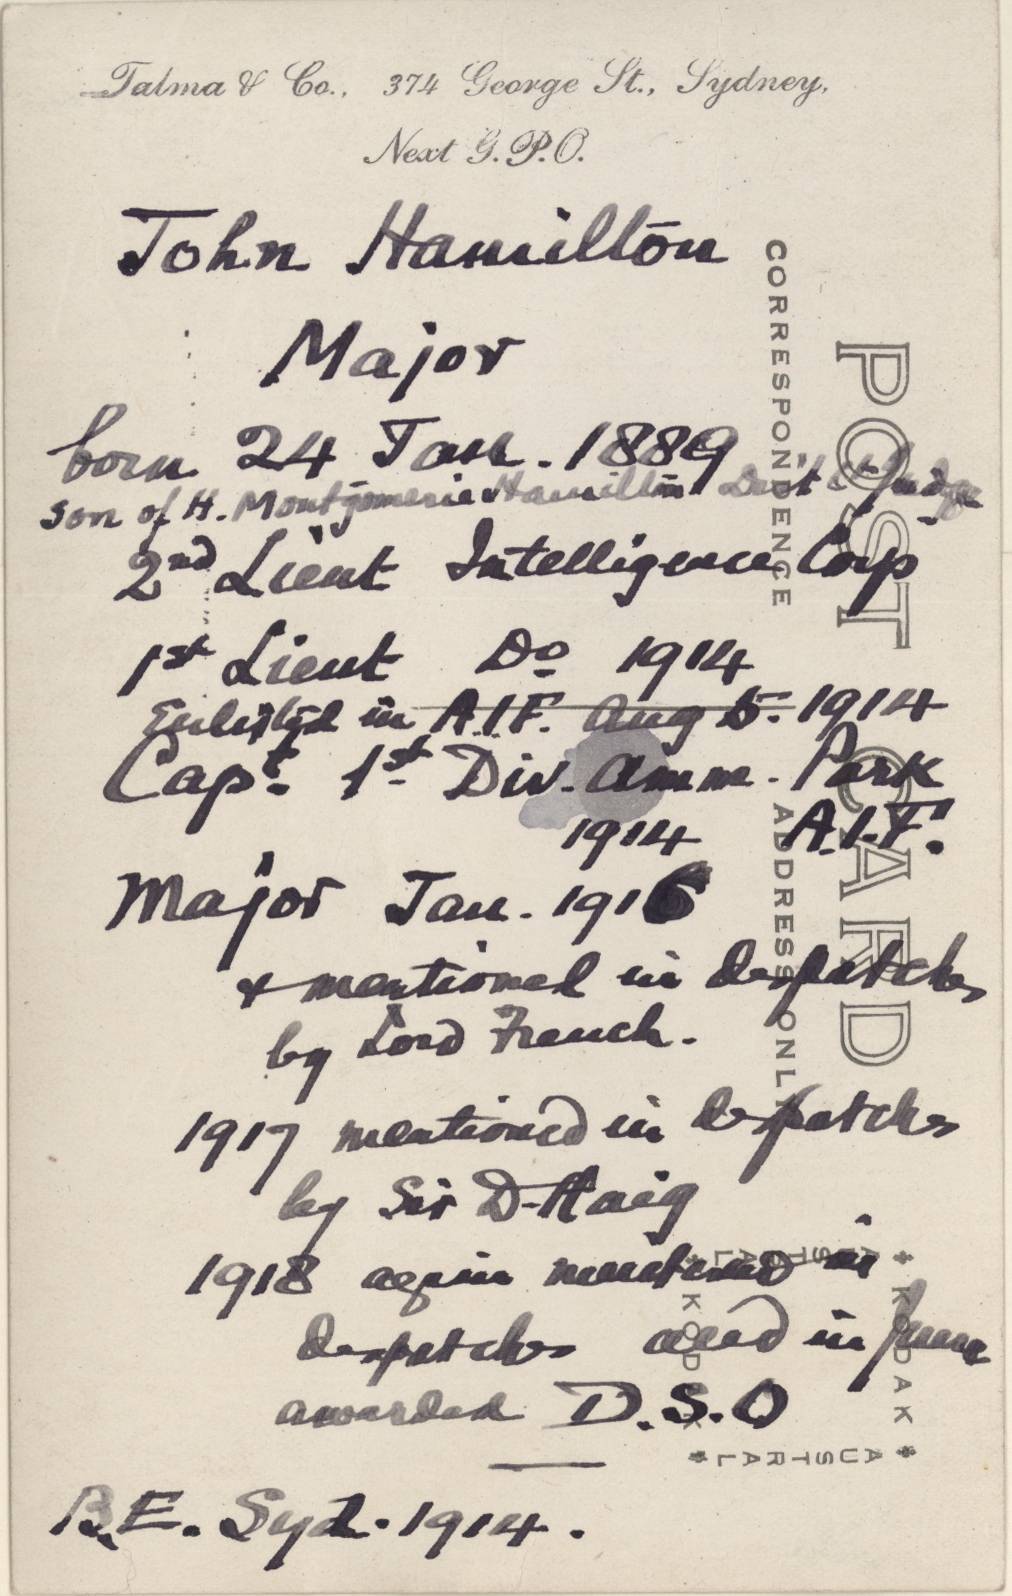 Talma & Co., 374 George St., Sydney,
Next G.P.O.
John Hamilton
Major
born 24 Jan. 1889
son of H. Montgomerie Hamilton Dist. Judge
2nd Lieut Intelligence Corp
1st Lieut Do 1914
Enlisted in A.I.F. Aug 5. 1914
Capt. 1st Div. Amm. Park
1914 A.I.F.
Major Jan. 1916
& mentioned in despatches
by Lord French.
1917 mentioned in despatches
by Sir D. Haig
1918 again mentioned in
despatches and in June
awarded D.S.O
B.E. Syd. 1914.
POST CARD
CORRESPONDENCE
ADDRESS ONLY
KODAK
AUSTRAL
KODAK
AUSTRAL